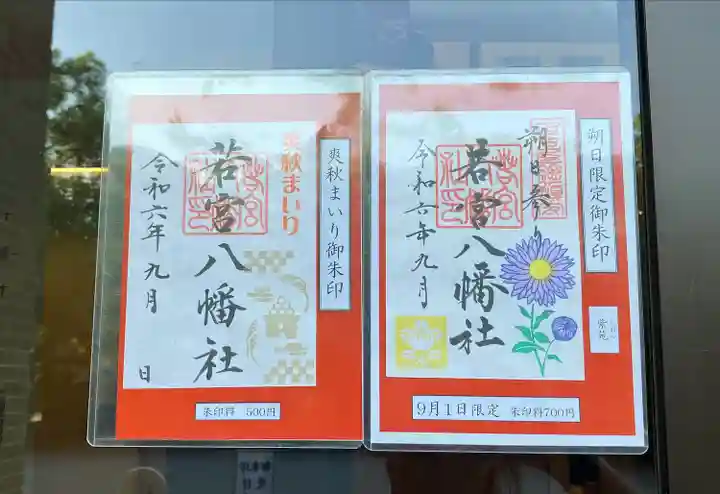 朔日限定御朱印
紫苑
朔日参り
若宮八幡社
令和六年九月
9月1日限定 朱印料700円
爽秋まいり御朱印
爽秋まいり
若宮八幡社
令和六年九月 日
朱印料 500円